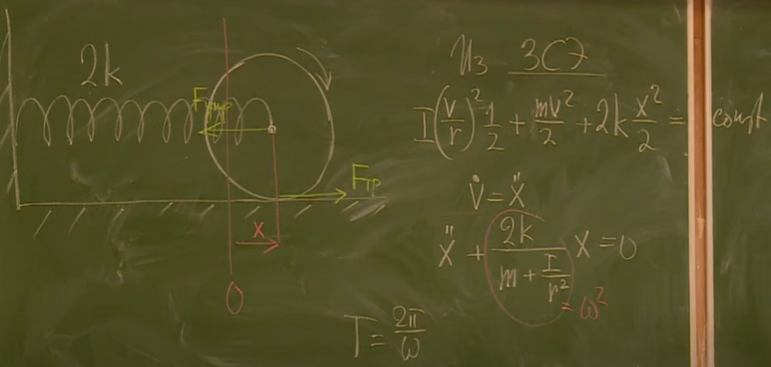 2k
Fупр
Fтр
x
0
Из ЗСЭ
I(v/r)² 1/2 + mv²/2 + 2k x²/2 = const
v̇ = ẍ
ẍ + 2k/(m + I/r²) x = 0
= ω²
T = 2π/ω